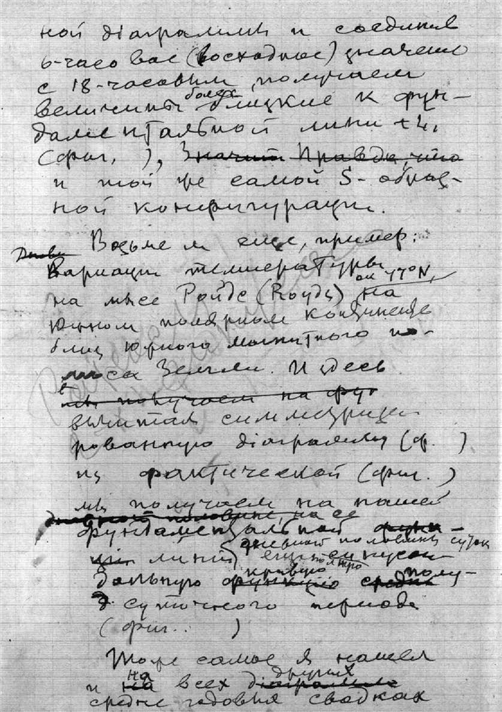 ной діаграммы и соединив
6-часовое (восходное) значение
с 18-часовым, получаем
более
величины близкие к фун-
даментальной линии
(фиг. ), Значит Правда, что
и той же самой S-образ-
ной конфигурации.
Возьмем еще, пример:
Вариации температуры
на мысе Ройдс (Royds) на
Южном полярном континенте
близ южного магнитного по-
люса Земли. И здесь
мы получаем на фун
вычитая симметризи-
рованную діаграмму (ф. )
из фактической (фиг. )
мы получаем на нашей
фундаментальной
линии
дневной половины суток
еще синусои-
дальную кривую полу-
суточного периода
(фиг.. )
То же самое я нашел
на других
и на всех діаграммах
средне годовых сводках